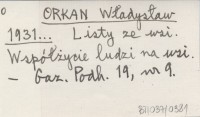 0
ORKAN Władysław
1931... Listy ze wsi.
Współżycie ludzi na wsi.
- Gaz. Podh. 19, nr 9.
BI/037/0389